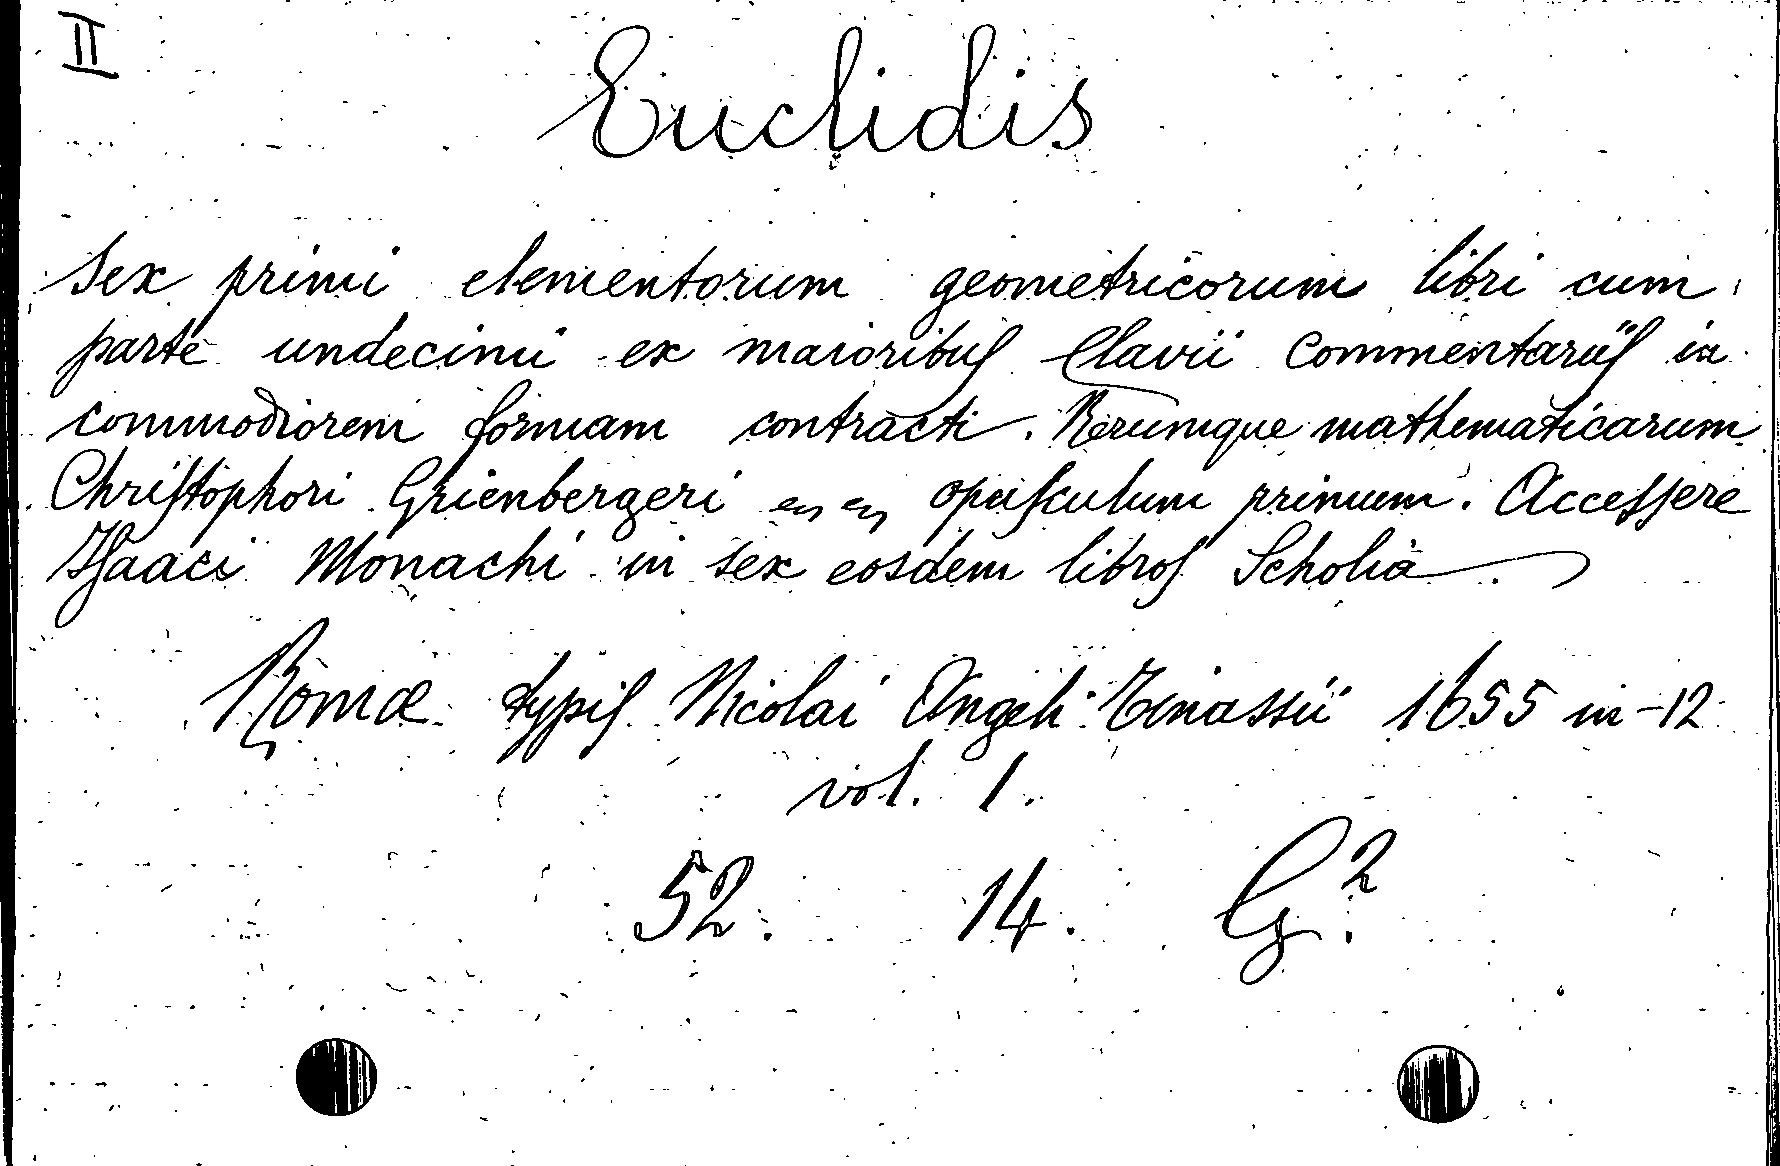 II
Euclidis
sex primi elementorum geometricorum libri cum
parte undecimi ex maioribus Clavii Commentariis in
commodiorem formam contracti. Rerumque mathematicarum
Christophori Grienbergeri opusculum primum. Accessere
Isaaci Monachi in sex eosdem libros Scholia.
Romæ typis Nicolai Angeli Tinassii 1655 in-12
vol. 1.
52. 14. G.2